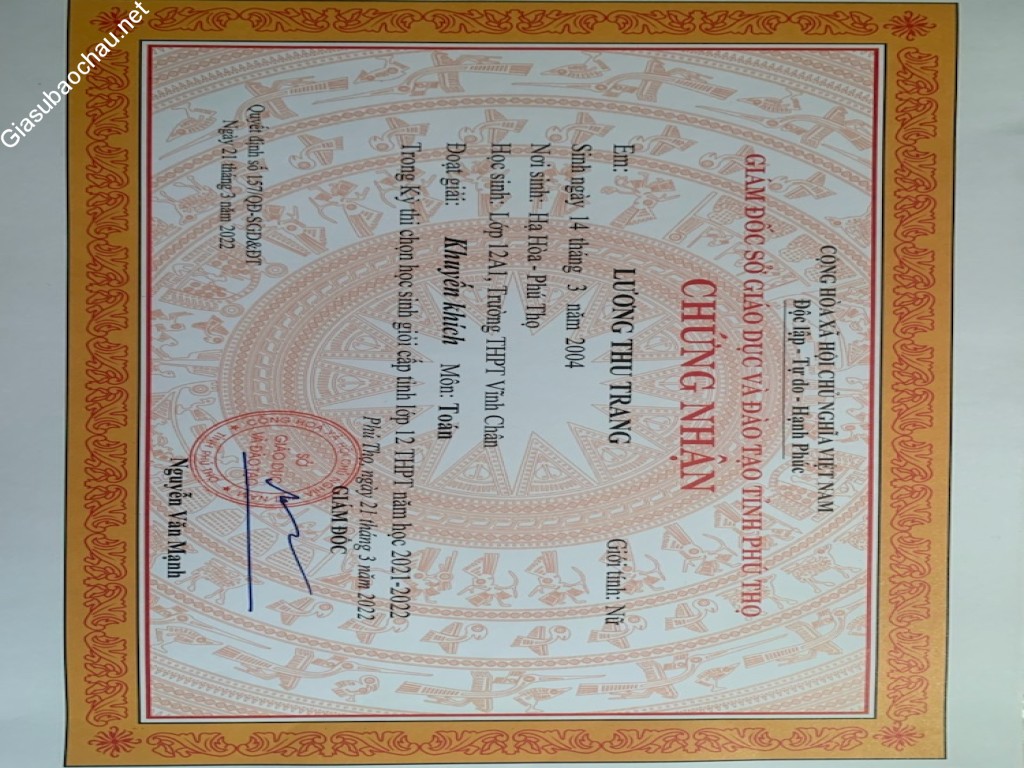 Giasubaochau.net
CỘNG HÒA XÃ HỘI CHỦ NGHĨA VIỆT NAM
Độc lập - Tự do - Hạnh Phúc
GIÁM ĐỐC SỞ GIÁO DỤC VÀ ĐÀO TẠO TỈNH PHÚ THỌ
CHỨNG NHẬN
Em: LƯƠNG THU TRANG Giới tính: Nữ
Sinh ngày 14 tháng 3 năm 2004
Nơi sinh: Hạ Hòa - Phú Thọ
Học sinh: Lớp 12A1, Trường THPT Vĩnh Chân
Đoạt giải: Khuyến khích Môn: Toán
Trong Kỳ thi chọn học sinh giỏi cấp tỉnh lớp 12 THPT năm học 2021-2022
Phú Thọ, ngày 21 tháng 3 năm 2022
GIÁM ĐỐC
SỞ
GIÁO DỤC
VÀ ĐÀO TẠO
Nguyễn Văn Mạnh
Quyết định số 157/QĐ-SGD&ĐT
Ngày 21 tháng 3 năm 2022